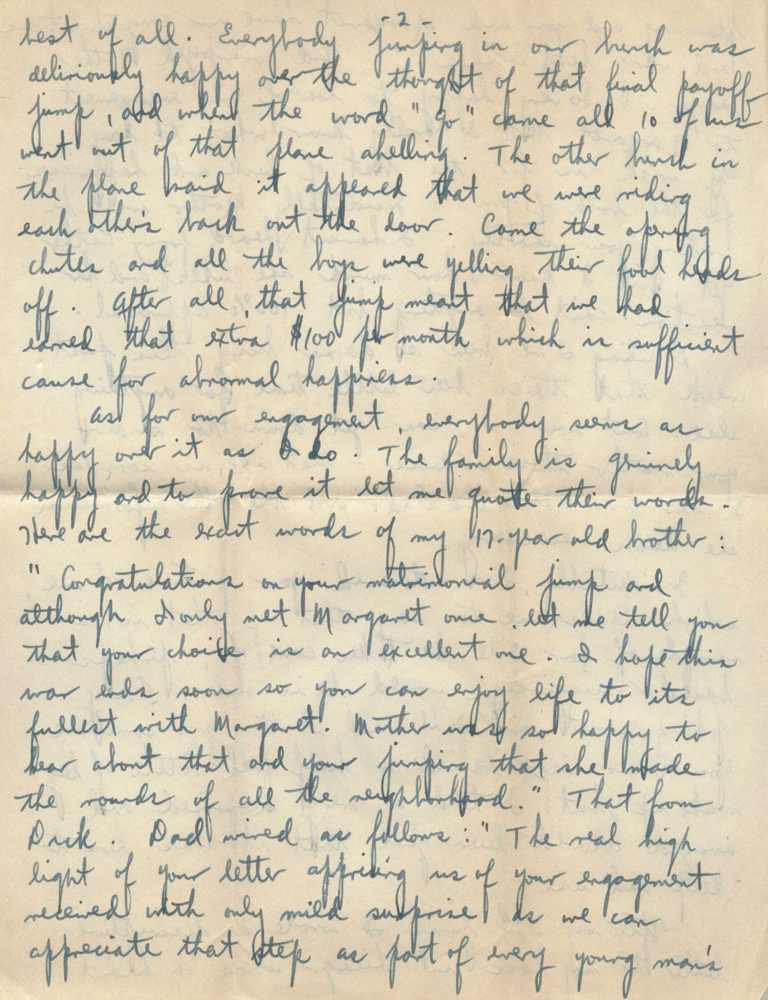 - 2 -
best of all. Everybody jumping in our bunch was
deliriously happy over the thought of that final payoff
jump, and when the word "go" came all 10 of us
went out of that plane ahelling. The other bunch in
the plane said it appeared that we were riding
each other's back out the door. Came the opening
chutes and all the boys were yelling their fool heads
off. After all, that jump meant that we had
earned that extra $100 per month which is sufficient
cause for abnormal happiness.
As for our engagement, everybody seems as
happy over it as I do. The family is genuinely
happy and to prove it let me quote their words.
Here are the exact words of my 17-year old brother:
"Congratulations on your matrimonial jump and
although I only met Margaret once, let me tell you
that your choice is an excellent one. I hope this
war ends soon so you can enjoy life to its
fullest with Margaret. Mother was so happy to
hear about that and your jumping that she made
the rounds of all the neighborhood." That from
Dick. Dad wired as follows: "The real high
light of your letter apprising us of your engagement
received with only mild surprise as we can
appreciate that step as part of every young man's